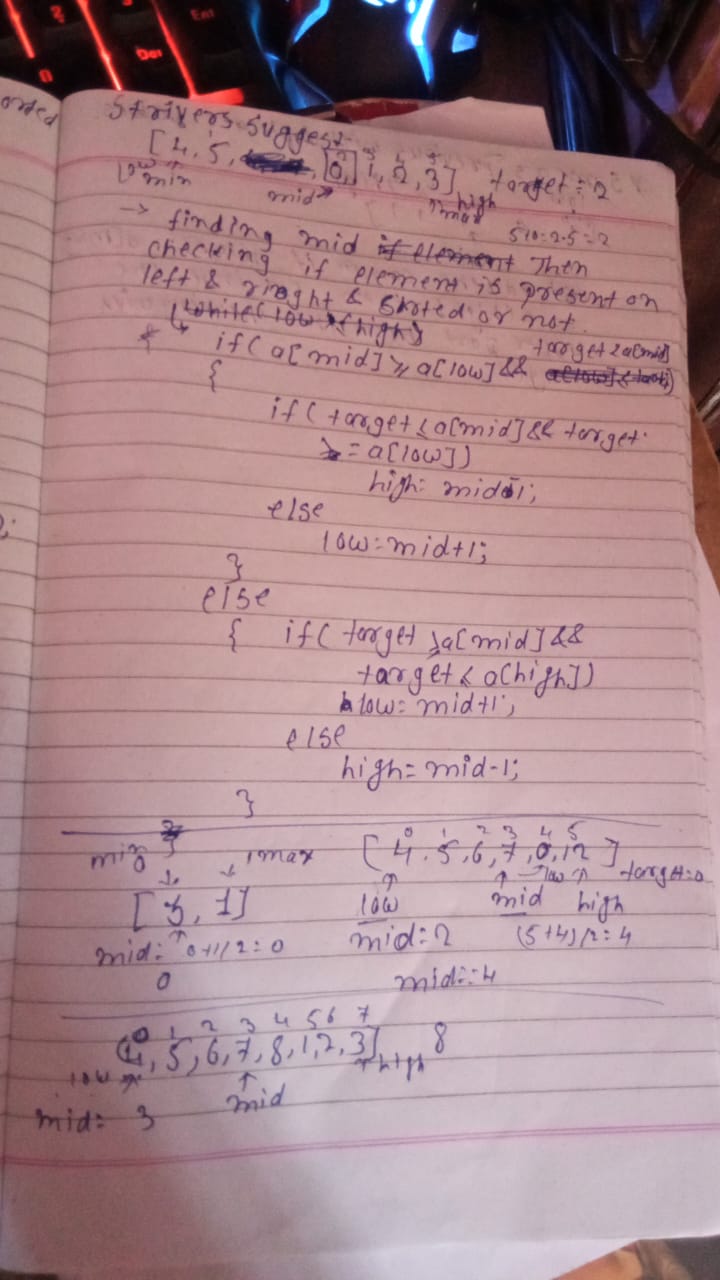 orted
Strivers Suggest
[4, 5, [0,] 1, 2, 3] target = 2
low min mid high
max
5+0=2.5=2
→ finding mid if element Then
checking if element is present on
left & right & Shoted or not.
while(low <high)
* if(a[mid]>=a[low]&& target<a[mid]
{
if(target<a[mid]&& target
>=a[low])
high= mid-1;
else
low=mid+1;
}
else
{ if( target >a[mid]&&
target< a[high])
low= mid+1;
else
high= mid-1;
}
0 1 2 3 4 5
min max [4.5,6,7,0,12] target=0
low
[3, 1] low mid high
mid= 0+1/2=0 mid=2 (5+4)/2=4
0 mid=4
0 1 2 3 4 5 6 7
[4,5,6,7,8,1,2,3] 8
low high
mid= 3 mid